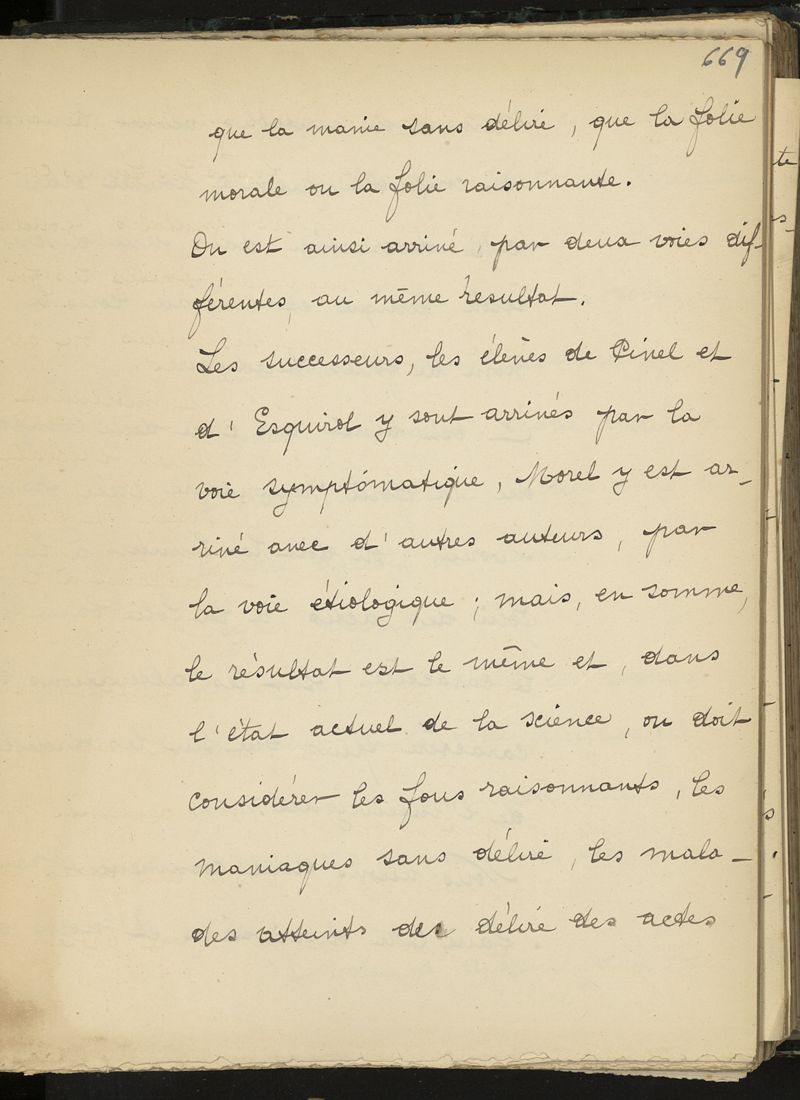 669
que la manie sans délire, que la folie
morale ou la folie raisonnante.
On est ainsi arrivé, par deux voies dif-
férentes, au même résultat.
Les successeurs, les élèves de Pinel et
d'Esquirol y sont arrivés par la
voie symptômatique, Morel y est ar-
rivé avec d'autres auteurs, par
la voie étiologique ; mais, en somme,
le résultat est le même et, dans
l'état actuel de la science, on doit
considérer les fous raisonnants, les
maniaques sans délire, les mala-
des atteints de délire des actes
te
s-